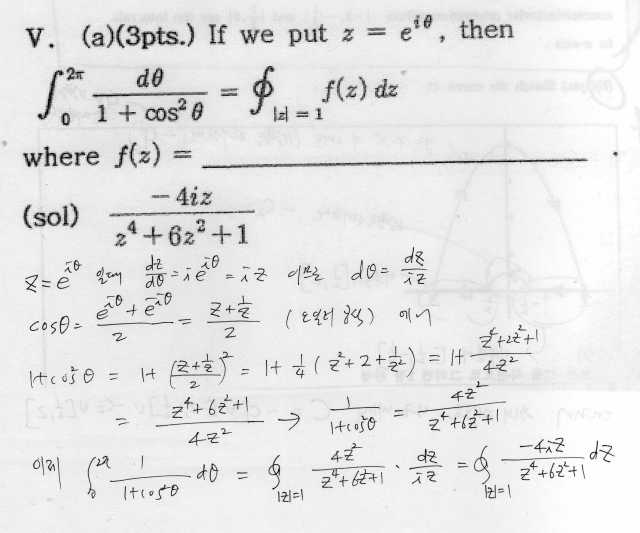 V. (a)(3pts.) If we put z = e^{iθ}, then
∫_0^{2π} dθ / (1 + cos² θ) = ∮_{|z| = 1} f(z) dz
where f(z) = ____________
(sol) −4iz / (z⁴ + 6z² + 1)
z = e^{iθ} 일때 dz/dθ = ie^{iθ} = iz 이므로 dθ = dz/iz
cosθ = (e^{iθ} + e^{-iθ})/2 = (z + 1/z)/2 (오일러 공식) 에서
1+cos²θ = 1+ ((z+1/z)/2)² = 1+ 1/4 (z²+2+1/z²) = 1+ (z⁴+2z²+1)/4z²
= (z⁴+6z²+1)/4z² → 1/(1+cos²θ) = 4z²/(z⁴+6z²+1)
∫_0^{2π} 1/(1+cos²θ) dθ = ∮_{|z|=1} 4z²/(z⁴+6z²+1) · dz/iz = ∮_{|z|=1} −4iz/(z⁴+6z²+1) dz